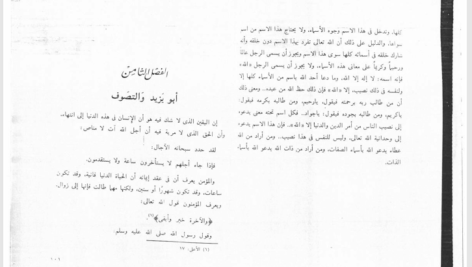 انتها، وتدخل في هذا الاسم وجوه الأسماء، ولا يحتاج هذا الاسم من اسم
سواه، والدليل على ذلك أن الله تعالى تفرد بهذا الاسم دون خلقه وأنه
شارك خلقه في أسمائه كلها سوى هذا الاسم ويجوز أن يسمى الرجل
ورحيماً وكريماً على معاني هذه الأسماء، ولا يجوز أن يسمى الرجل الله،
فإنه اسمه: لا إله إلا الله، وما دعا أحد الله باسم من الأسماء كلها إلا
ولنفسه في ذلك نصيب. إلا الله فإن ذلك حظ الله من عبده. ومعنى ذلك
أن من طالب ربه برحمته فيقول: يا رحيم، ومن طالب بكرمه فيقول:
يا كريم. ومن طالب بجوده فيقول: يا جواد. فكل اسم تحته معنى يدعو،
إلى نصيب الناس من أمر الدين والدنيا إلا الله. فإن هذا الاسم يدعو
إلى وحدانية الله تعالى، وليس للنفس في هذا نصيب. ومن أراد من الله
عطاء يدعو الله بأسماء الصفات، ومن أراد من ذات الله يدعو الله بأسماء
الذات.
الفصل الثامن
أبو يزيد والتصوف
إن اليقين الذي لا شك فيه هو أن الإنسان في هذه الدنيا إلى انتهاء..
وأن الحق الذي لا مرية فيه أن أجل الله آت لا مناص:
لقد حدد سبحانه الآجال:
فإذا جاء أجلهم لا يستأخرون ساعة ولا يستقدمون.
والمؤمن يعرف أن في عقد إيمانه أن الحياة الدنيا فانية، وقد تكون
ساعات، وقد تكون شهوراً أو سنين، ولكنها مهما طالت فإنها إلى زوال
ويعرف المؤمنون قول الله تعالى:
﴿والآخرة خير وأبقى﴾(١).
وقول رسول الله صلى الله عليه وسلم:
(١) الأعلى. ١٧